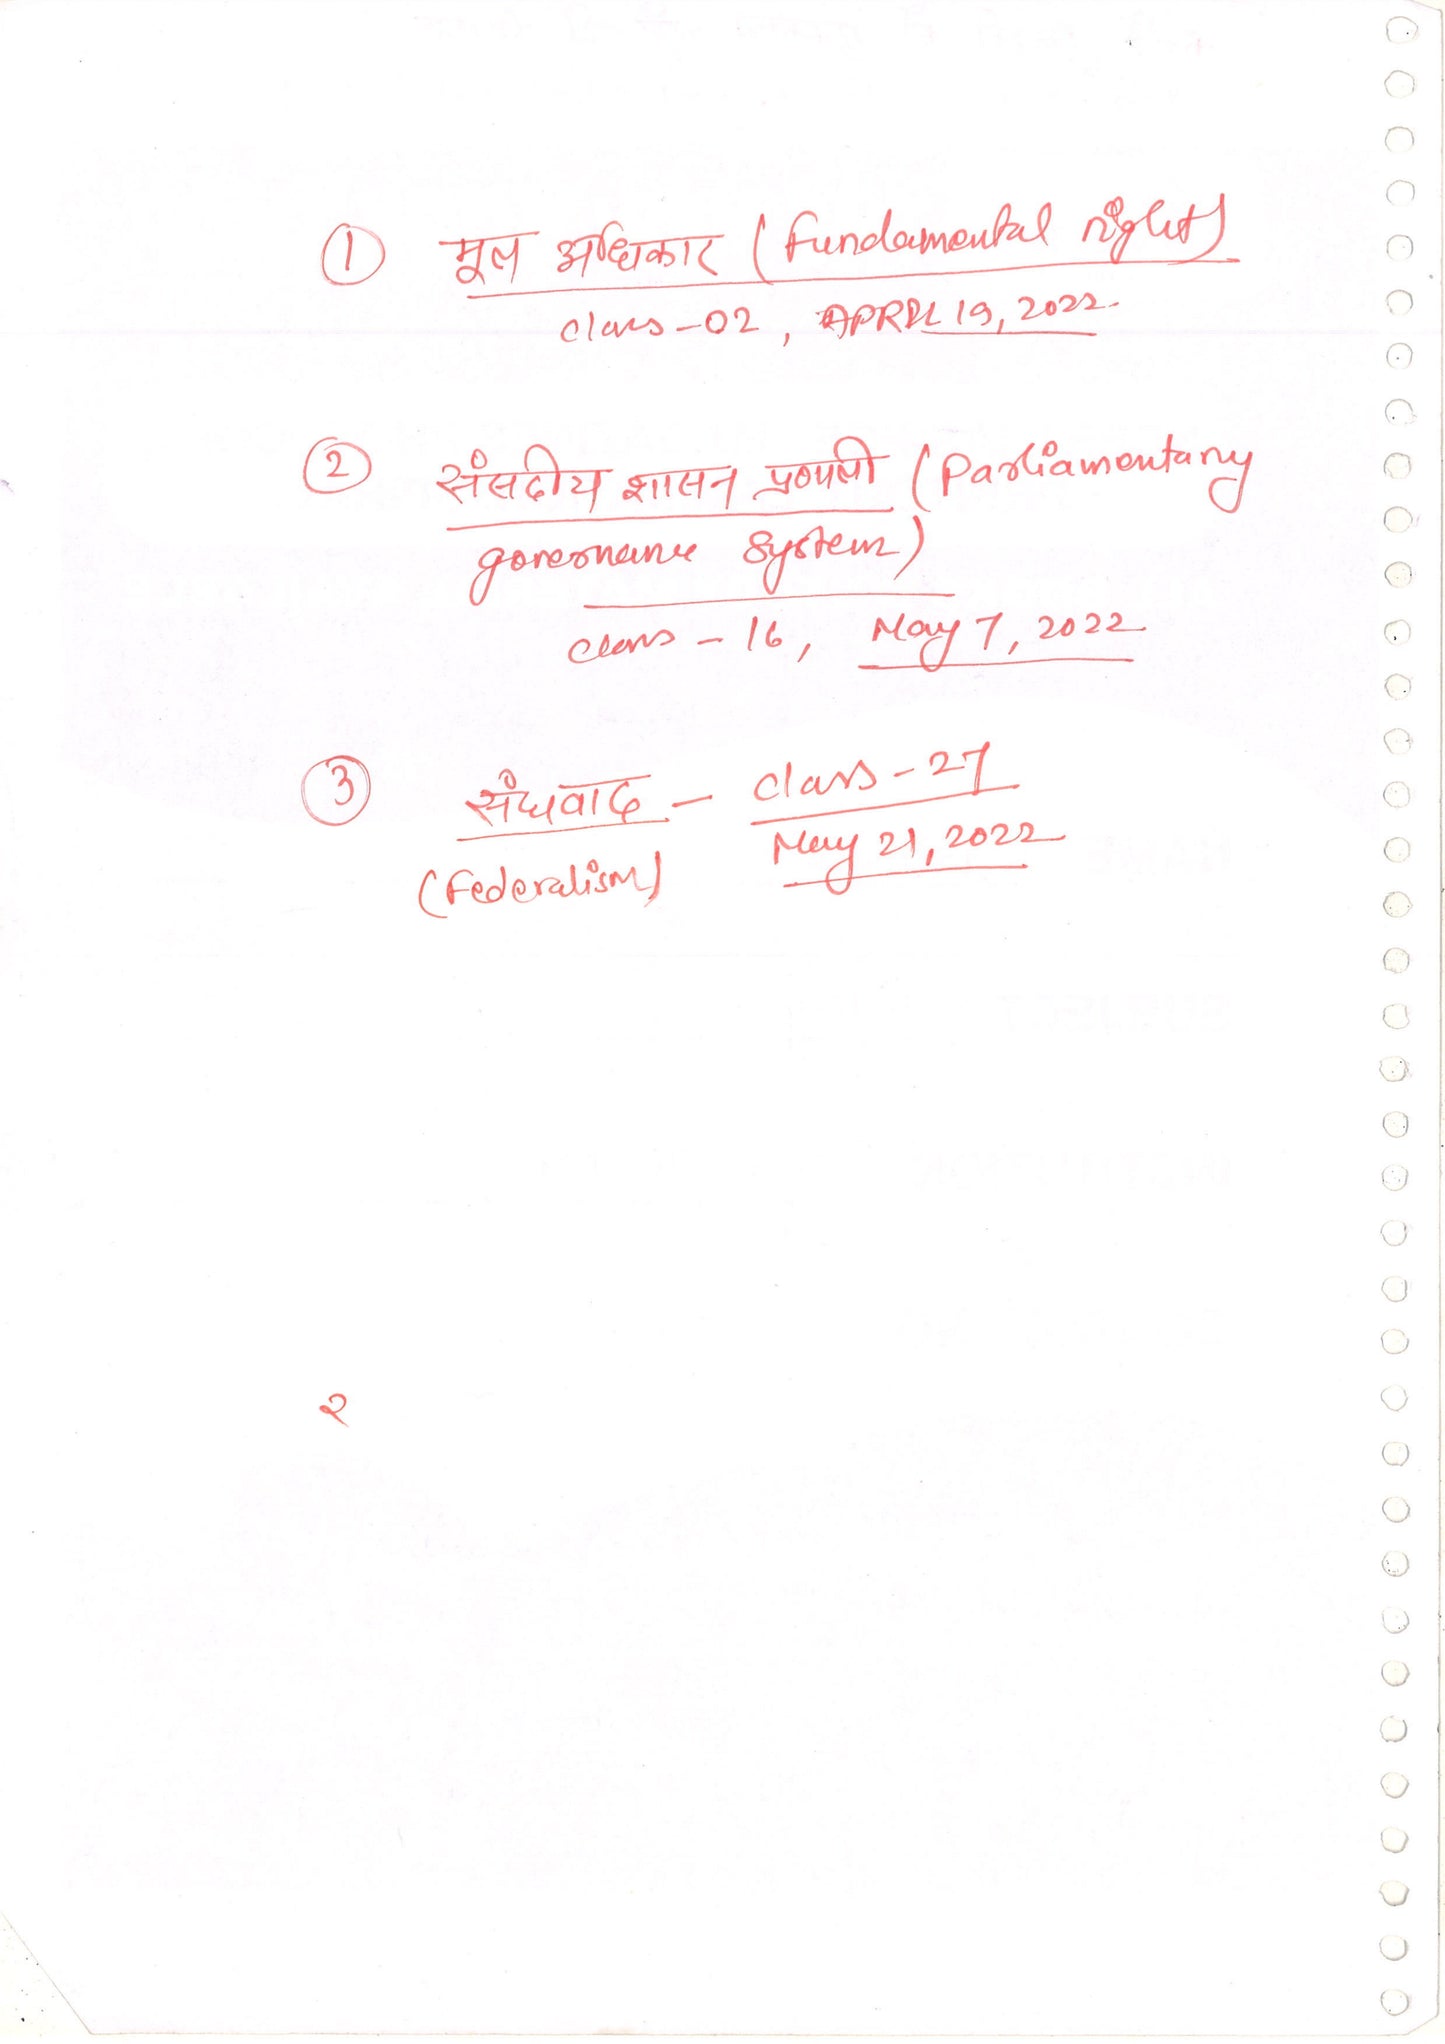 ① मूल अधिकार (Fundamental right)
class-02, APRIL 19, 2022
② संसदीय शासन प्रणाली (Parliamentary
governance system)
class - 16, May 7, 2022
③ संघवाद - class-27
(Federalism) May 21, 2022
२